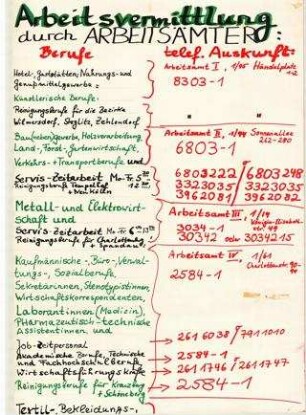 Arbeitsvermittlung
durch ARBEITSÄMTER:
Berufe telef. Auskunft:
Arbeitsamt I, 1/95 Händelplatz
Hotel-, Gaststätten, Nahrungs- und
Genußmittelgewerbe = 8303-1
Künstlerische Berufe-
Reinigungsberufe für die Bezirke " "
Wilmersdorf, Steglitz, Zehlendorf
Arbeitsamt II, 1/44 Sonnenallee
Bau(neben)gewerbe, Holzverarbeitung 262-280
Land-, Forst-, Gartenwirtschaft, 6803-1
Verkehrs- + Transportberufe und
6803222 / 6803248
Servis-Zeitarbeit Mo-Fr 5 3323035 / 3323035
Reinigungsberufe Tempelhof + Neukölln 3962081 / 3962081
Metall- und Elektrowirt-
schaft und Arbeitsamt III, 1/19
Servis-Zeitarbeit Mo-Fr 3034-1
Reinigungsberufe für Charlottenburg + Spandau 30342 oder 3034215
Kaufmännische-, Büro-, Verwal- Arbeitsamt IV, 1/61
tungs-, Sozialberufe Charlottenstr. 90-94
Sekretärinnen, Stenotypistinnen 2584-1
Wirtschaftskorrespondenten,
Laborantinnen (Medizin),
Pharmazeutisch-technische
Assistentinnen und
Job-Zeitpersonal 2616038 / 7911010
Akademische Berufe, Technische 2584-1
und Fachhochschulberufe
Wirtschaftsführungskräfte 2611746 / 2611747
Reinigungsberufe für Kreuzberg + Schöneberg 2584-1
Textil-, Bekleidungs-,